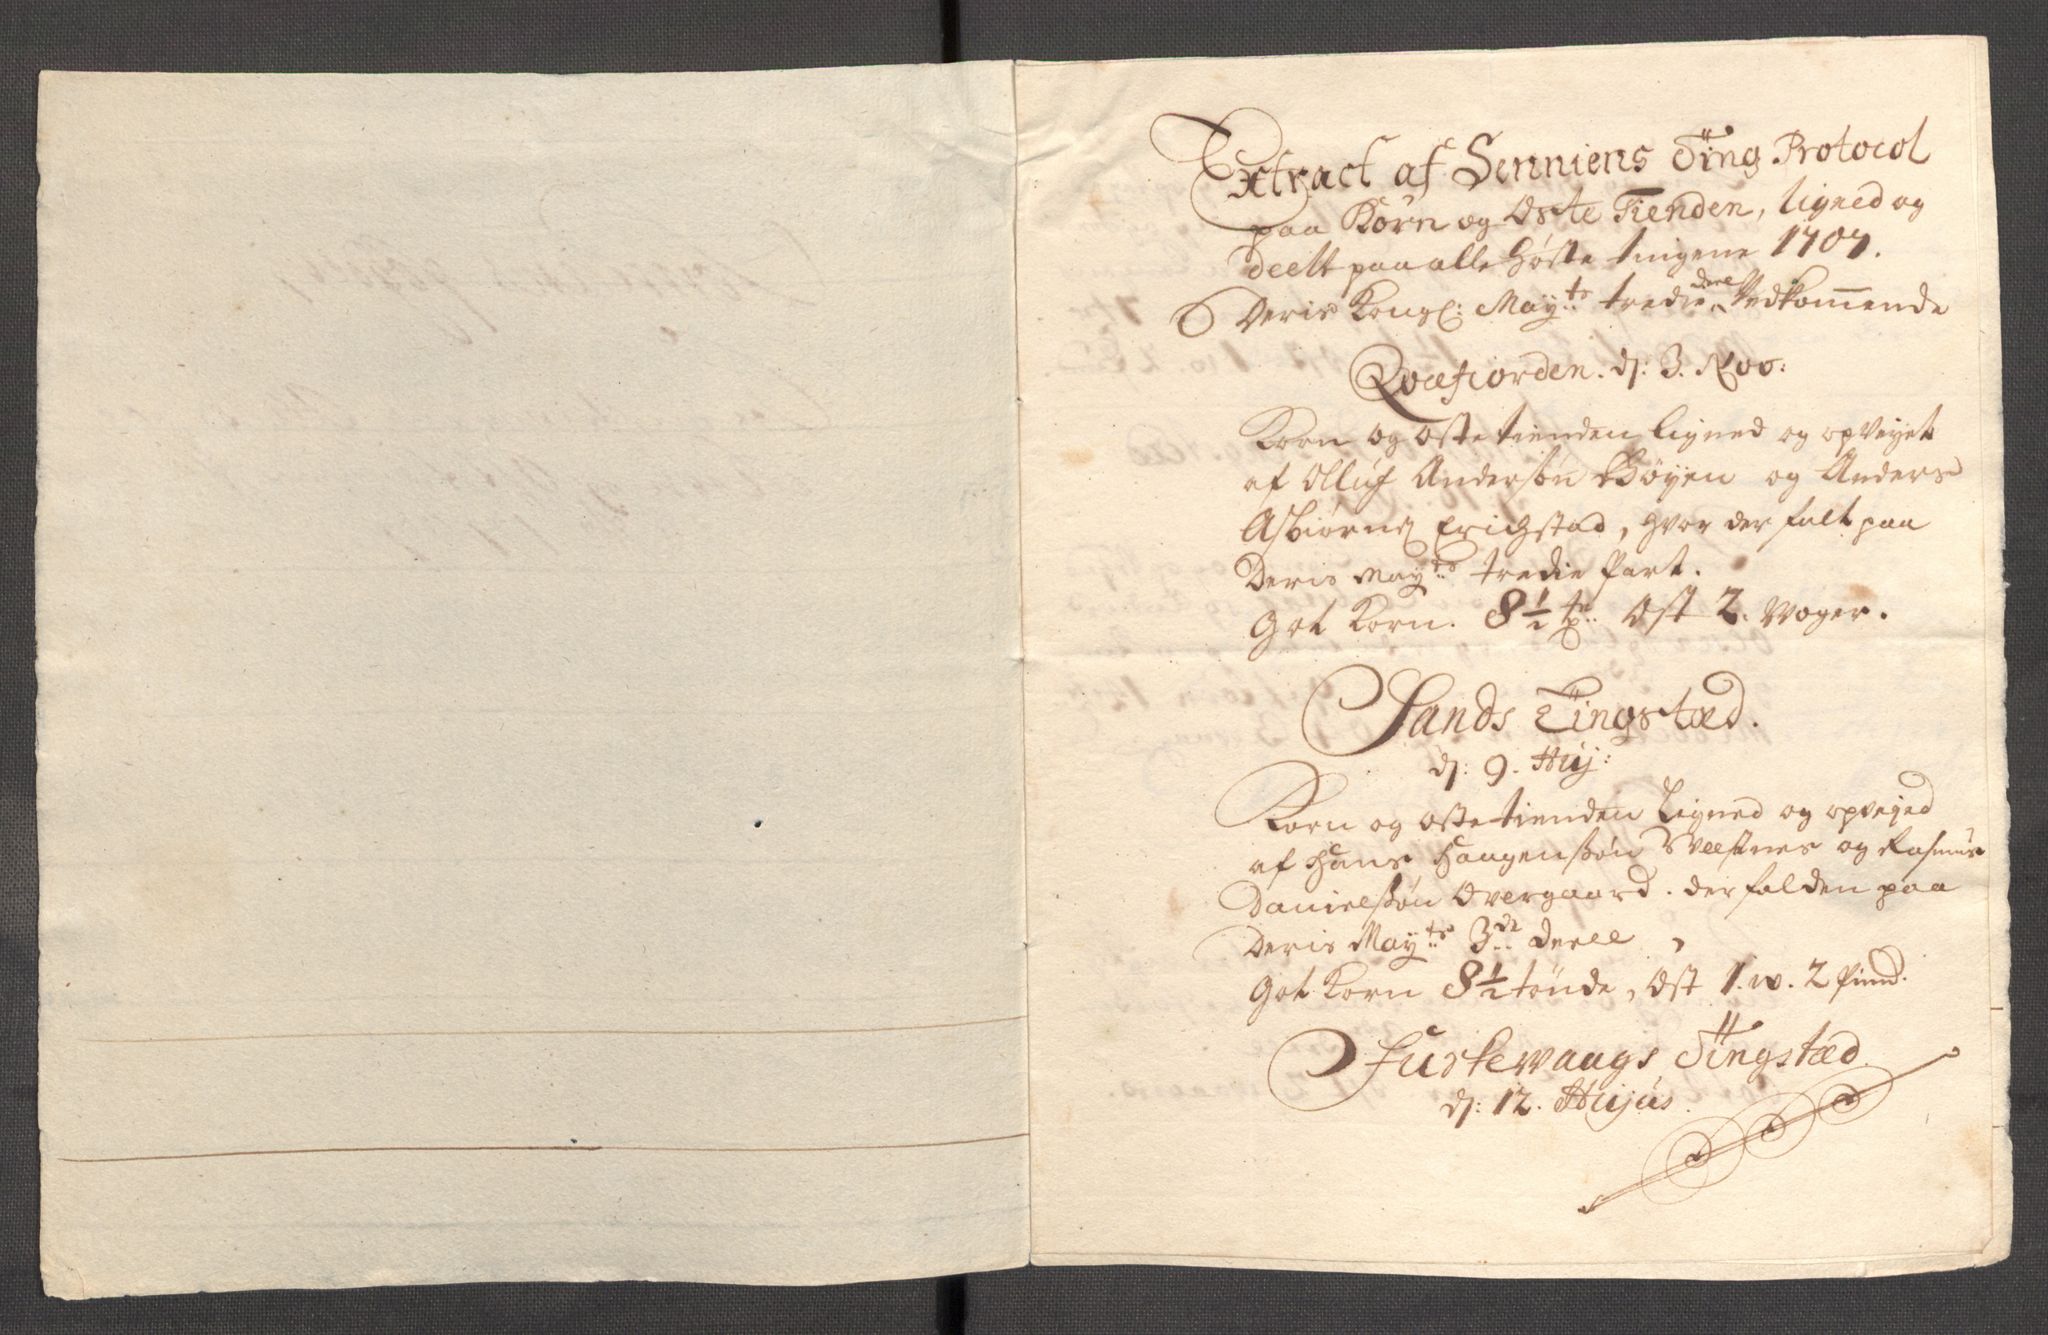 Extract af Senniens Ting Protocol
paa Korn og Oste Tienden, ligned og
deelt paa alle Høste tingene 1707.
Deris Kongl: May:ts tredie deel Vedkommende
Qvefiorden. d: 3. Nov:
Korn og oste tienden ligned og opveyet
af Olluf Anderssøn Bøyen og Anders
Asbiørns Erichstad, hvor der falt paa
Deris May:ts tredie Part.
Got Korn. 8½ tr: Ost 2. Woger.
Sands Tingstæd.
d: 9. Huj:
Korn og oste tienden Ligned og opvejed
af Hans Haagenssøn Veesnes og Rasmus
Danielssøn Overgaard. der falden paa
Deris May:ts 3de deell,
Got Korn 8½ tønde, Ost 1. w. 2 Pund.
Fuskevaags Tingstæd
d: 12. Hujus.